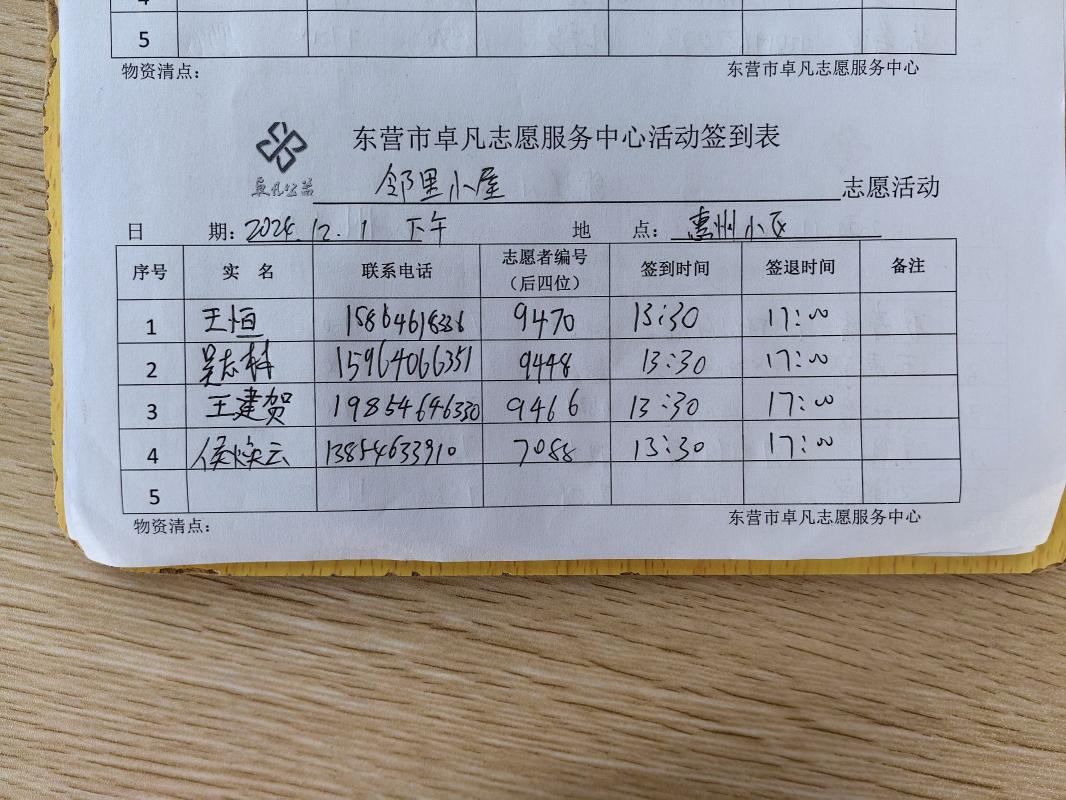 5
物资清点：
东营市卓凡志愿服务中心
东营市卓凡志愿服务中心活动签到表
卓凡公益
邻里小屋 志愿活动
日 期：2024.12.1 下午 地 点：惠州小区
序号 实 名 联系电话 志愿者编号（后四位） 签到时间 签退时间 备注
1 王恒 9470 13:30 17:00
2 吴志科 15964066351 9448 13:30 17:00
3 王建贺 19854646330 9466 13:30 17:00
4 侯焕云 13854633910 7088 13:30 17:00
5
物资清点：
东营市卓凡志愿服务中心